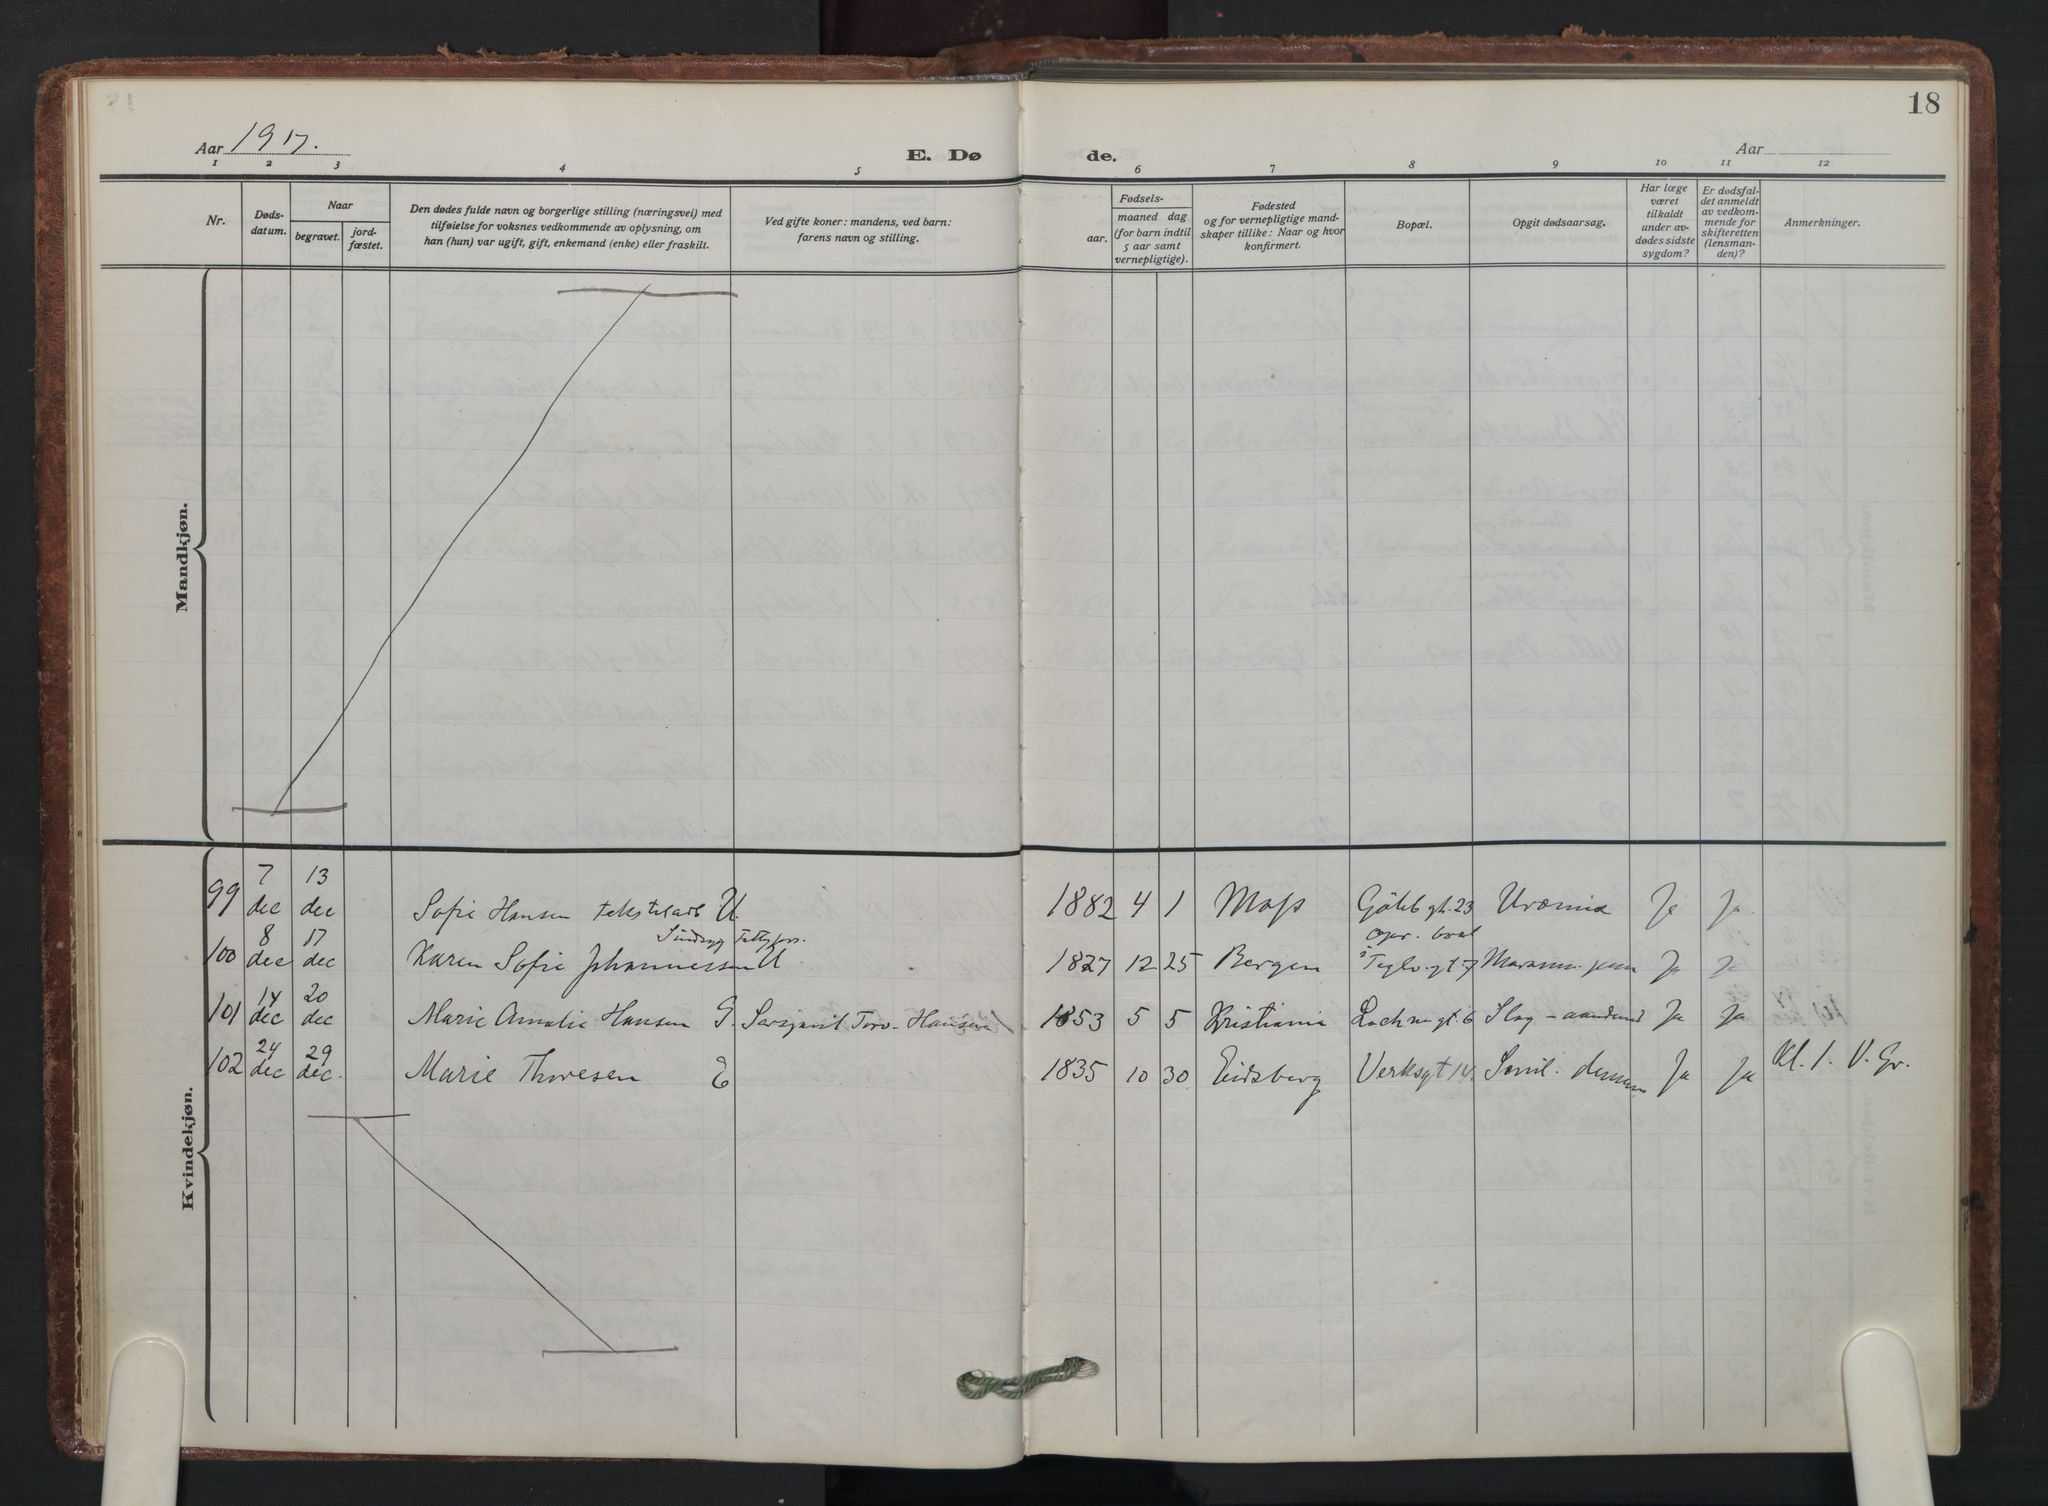 18
Aar 1917.
E. Dø
de.
Aar
1 2 3 4 5 6 7 8 9 10 11 12
Nr.
Døds-
datum.
Naar
begravet.
jord-
fæstet.
Den dødes fulde navn og borgerlige stilling (næringsvei) med
tilføielse for voksnes vedkommende av oplysning, om
han (hun) var ugift, gift, enkemand (enke) eller fraskilt.
Ved gifte koner: mandens, ved barn:
farens navn og stilling.
Fødsels-
aar.
maaned dag
(for barn indtil
5 aar samt
vernepligtige).
Fødested
og for vernepligtige mand-
skaper tillike: Naar og hvor
konfirmert.
Bopæl.
Opgit dødsaarsag.
Har læge
været
tilkaldt
under av-
dødes sidste
sygdom?
Er dødsfal-
det anmeldt
av vedkom-
mende for
skifteretten
(lensman-
den)?
Anmerkninger.
Mandkjøn.
Kvindekjøn.
99 7 dec 13 dec Sofie Hansen U. 1882 4 1 Moss 23 Uræmia Ja Ja
100 8 dec 17 dec Karen Sofie Johannessen U 1827 12 25 Bergen Ja Ja
101 14 dec 20 dec Marie Amalie Hansen G. Hansen 1853 5 5 Kristiania 6 Ja Ja
102 24 dec 29 dec. Marie Thoresen E 1835 10 30 Eidsberg Verksgt 14. Senil. Ja Ja Kl. 1. V. Gr.